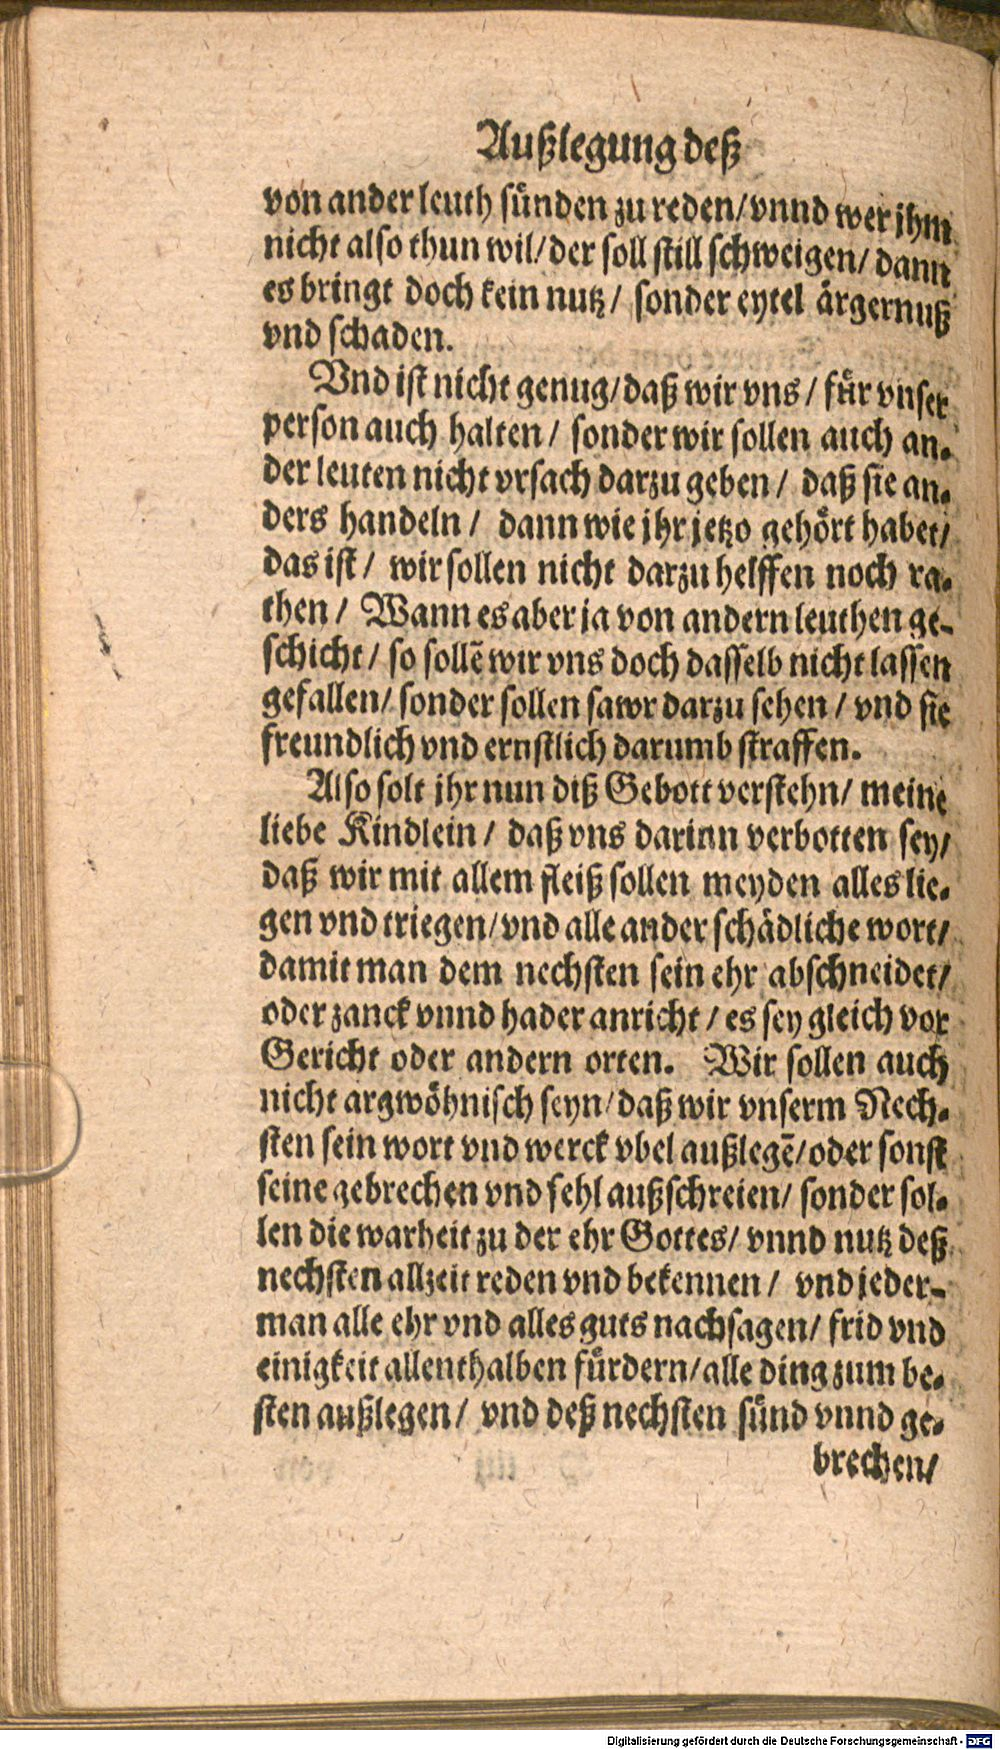 Außlegung deß
von ander leuth sünden zu reden/ vnnd wer jhm
nicht also thun wil/ der soll still schweigen/ dann
es bringt doch kein nutz/ sonder eytel ärgernuß
vnd schaden.
Vnd ist nicht genug/ daß wir vns/ für vnser
person auch halten/ sonder wir sollen auch an-
der leuten nicht vrsach darzu geben/ daß sie an-
ders handeln/ dann wie jhr jetzo gehört habet/
das ist/ wir sollen nicht darzu helffen noch ra-
then/ Wann es aber ja von andern leuthen ge-
schicht/ so sollē wir vns doch dasselb nicht lassen
gefallen/ sonder sollen sawr darzu sehen/ vnd sie
freundlich vnd ernstlich darumb straffen.
Also solt jhr nun diß Gebott verstehn/ meine
liebe Kindlein/ daß vns darinn verbotten sey/
daß wir mit allem fleiß sollen meyden alles lie-
gen vnd triegen/ vnd alle ander schädliche wort/
damit man dem nechsten sein ehr abschneidet/
oder zanck vnnd hader anricht/ es sey gleich vor
Gericht oder andern orten. Wir sollen auch
nicht argwöhnisch seyn/ daß wir vnserm Nech-
sten sein wort vnd werck vbel außlegē/ oder sonst
seine gebrechen vnd fehl außschreien/ sonder sol-
len die warheit zu der ehr Gottes/ vnnd nutz deß
nechsten allzeit reden vnd bekennen/ vnd jeder-
man alle ehr vnd alles guts nachsagen/ frid vnd
einigkeit allenthalben fürdern/ alle ding zum be-
sten außlegen/ vnd deß nechsten sünd vnnd ge-
brechen/
Digitalisierung gefördert durch die Deutsche Forschungsgemeinschaft - DFG